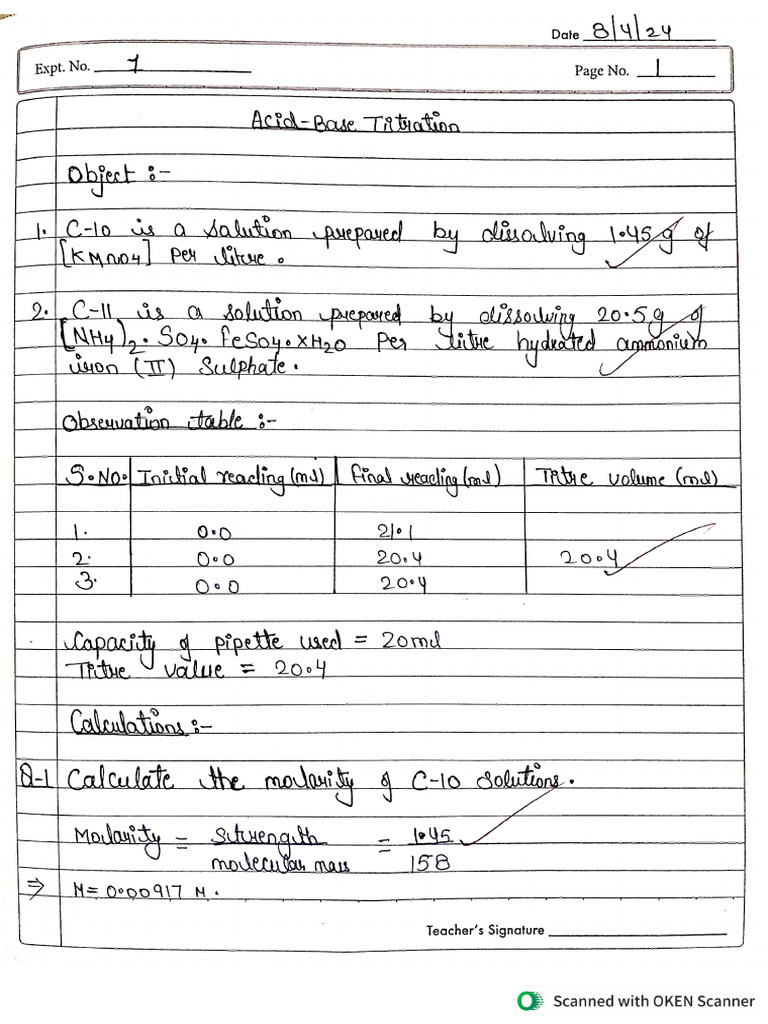 Date 8/4/24
Expt. No. 1
Page No. 1
Acid-Base Titration
Object :-
1. C-10 is a solution prepared by dissolving 1.45 g of
[KMnO4] per litre.
2. C-11 is a solution prepared by dissolving 20.5g of
[NH4)2.SO4.FeSO4.XH2O per litre hydrated ammonium
iron (II) Sulphate.
Observation table :-
S.NO. Initial reading (ml) final reading (ml) Titre volume (ml)
1. 0.0 21.1
2. 0.0 20.4 20.4
3. 0.0 20.4
Capacity of pipette used = 20ml
Titre value = 20.4
Calculations :-
Q-1 Calculate the molarity of C-10 solutions.
Molarity = Strength = 1.45
molecular mass 158
⇒ M= 0.00917 M.
Teacher's Signature
Scanned with OKEN Scanner